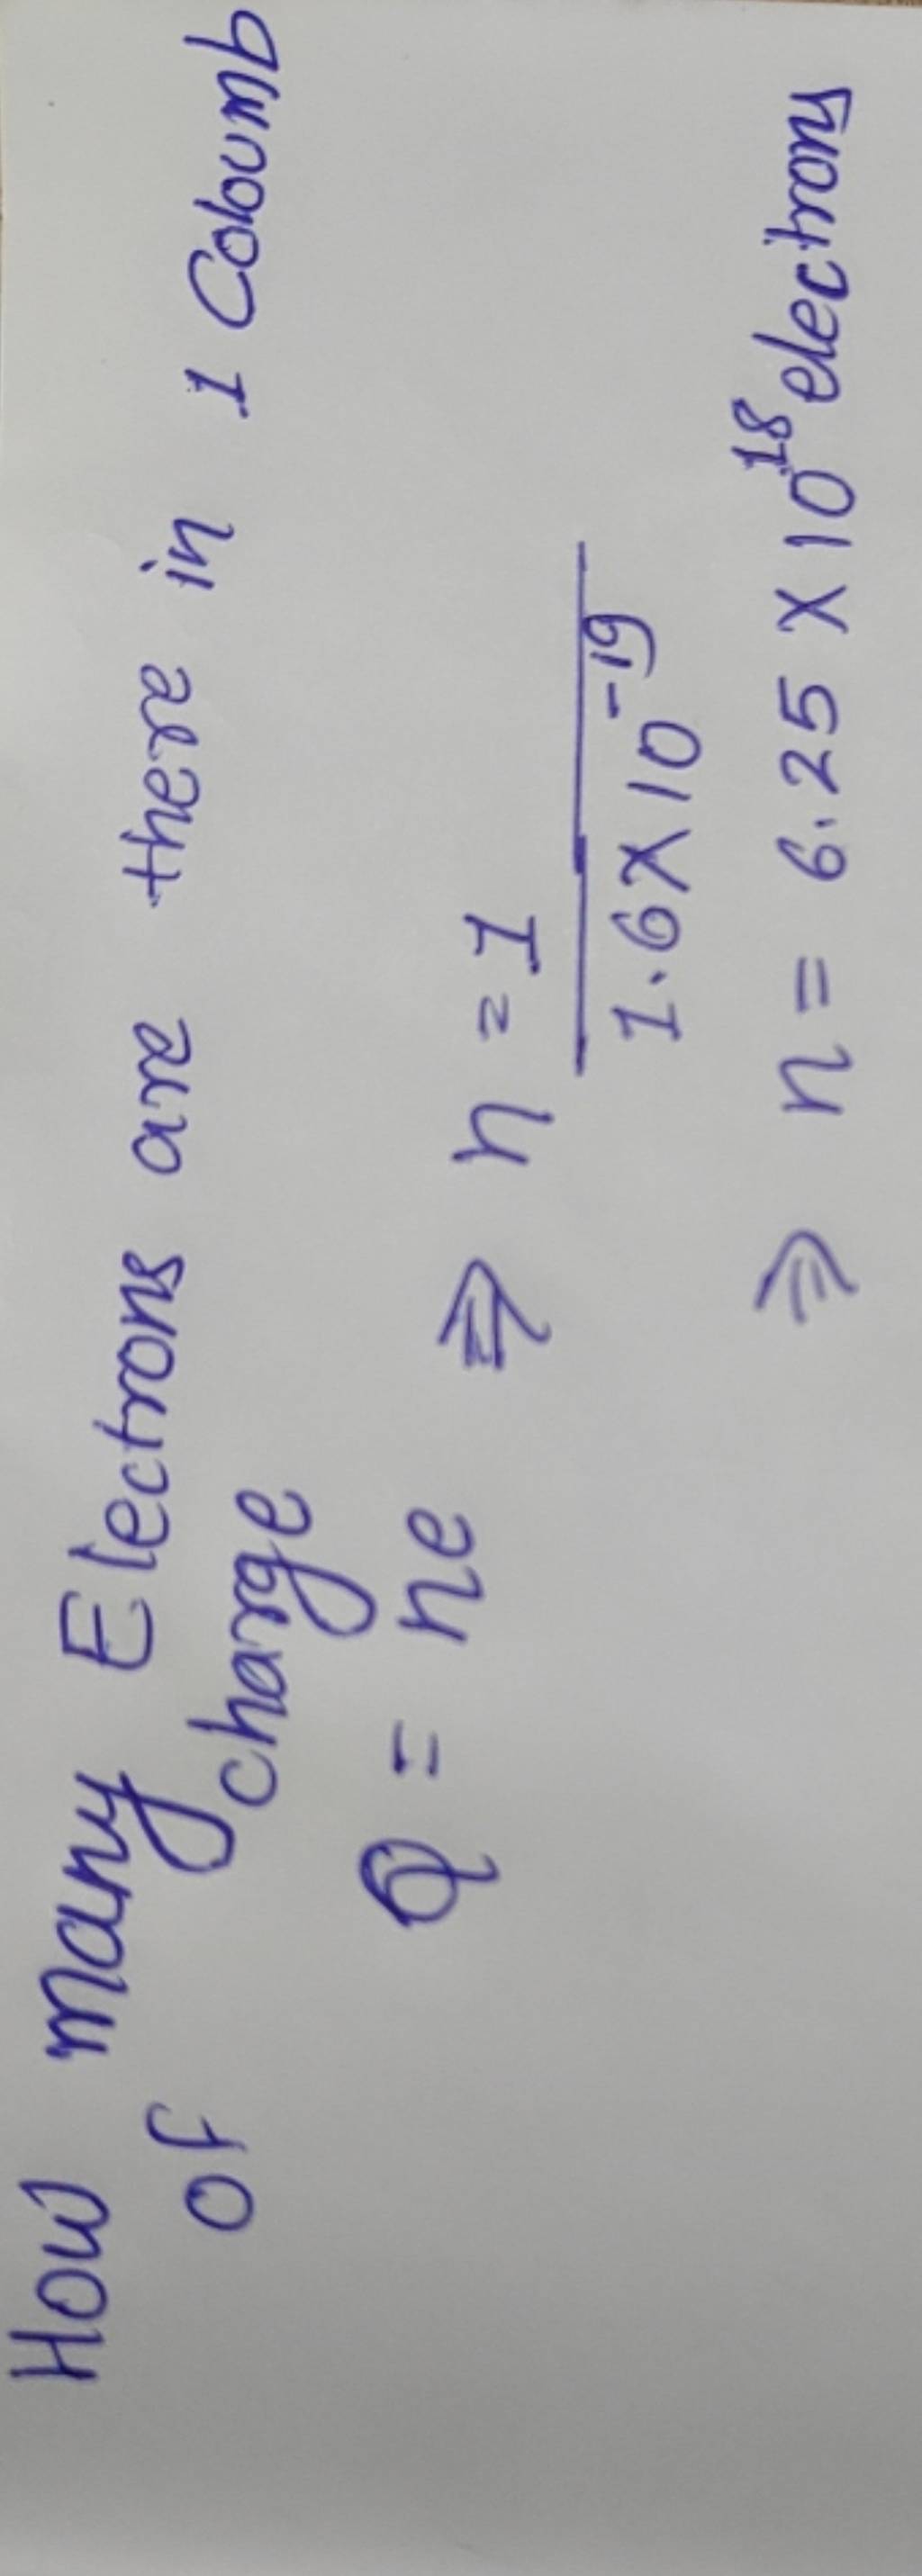 How many Electrons are there in 1 Coloumb
of charge
Q = ne ⇒ n = 1
1.6 X 10⁻¹⁹
⇒ n = 6.25 X 10¹⁸ electrons